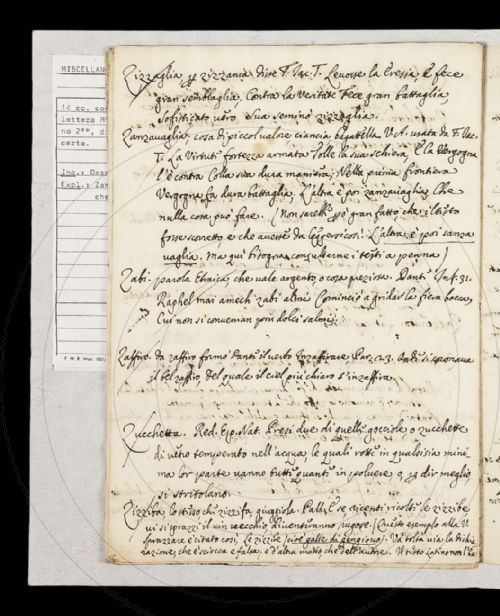 MISCELLAN
14 cc. co
lettera M
no 2°", d
certa.
Inc.: Oss
Expl.: Zam
che
Zizzaglia, p zizzania disse F. Iac. T. Levosse la Eresia, E fece
gran sembiaglia, Contra la Veritate Fece gran battaglia,
Sua seminò zizzaglia.
Zanzavaglia, cosa di picciol valore ciancia bagattella V. A. usata da F. Iac.
T. La Virtute fortezza armata Tolle la sua schiera, E la Vergogna
l'è contra Colla sua dura maniera; Nella prima frontiera
Vergogna fa dura battaglia, L'altra è poi zanzavaglia, Che
nulla cosa può fare. (Non sarebbe gran fatto che il testo
fosse scorretto e che avesse da leggersi così: L'altra è poi sanza
vaglia. Ma qui bisogna consultarne i testi a penna)
Zabì. parola Ebraica, che vale argento, o cosa preziosa. Dant. Inf. 31.
Raphel mai amech zabi almi Cominciò a gridar la fiera bocca,
Cui non si convenian più dolci salmi.
Zaffiro. Da zaffiro formò Dante il verbo Inzaffirare Par. 23. Onde si coronava
il bel zaffiro, del quale il ciel più chiaro s'inzaffira.
Zucchetta. Red. Esp. Nat. Presi due di quelle gocciole o zucchette
di vetro temperato nell'acqua, le quali rotte in qualsisia mini
ma lor parte vanno tutte quante in polvere o, p dir meglio,
si stritolano.
Zizziba, lo stesso che zizzifa, giuggiola. Pallad. Se recenti ricolti le zizzibe,
vi si sprazzi il vin vecchio, diventeranno rugose. (Questo esempio alla V.
Sprazzare è citato così, Le zizzibe (cioè galle di gengiovo). Va tolta via la dichia
razione, che è sciocca e falsa, e d'altra mano, che dell'autore. Il testo Latino non l'ha